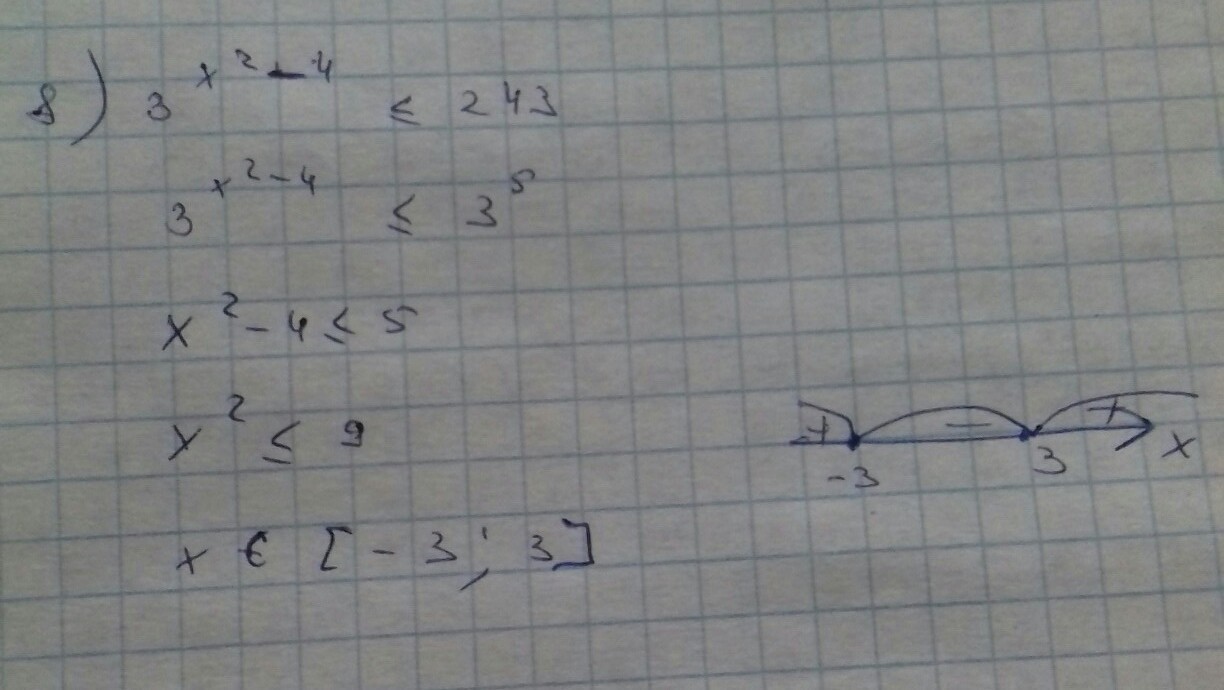 8) 3^(x²-4) ≤ 243
3^(x²-4) ≤ 3⁵
x²-4 ≤ 5
x² ≤ 9
+ − +
-3 3 x
x ∈ [-3; 3]